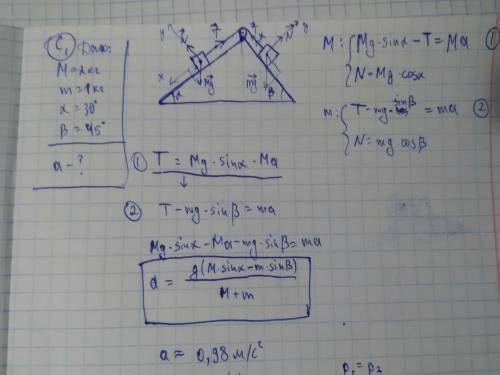 C₁ Дано:
M=2кг
m=1кг
α=30°
β=45°
a-?
y N T T N y
x mg mg x
α β
M: { Mg·sinα-T=Ma ①
N=Mg·cosα
m: { T-mg·sinβ=ma ②
N=mg·cosβ
① T=Mg·sinα-Ma
↓
② T-mg·sinβ=ma
Mg·sinα-Ma-mg·sinβ=ma
a = g(M·sinα-m·sinβ)
M+m
a≈0,98м/с²
p₁=p₂